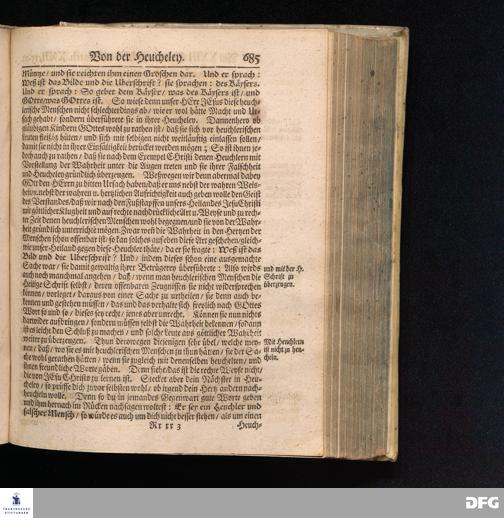 Von der Heucheley. 685
Müntze / und sie reichten ihm einen Groschen dar. Und er sprach:
Weß ist das Bilde und die Uberschrifft? sie sprachen: des Käysers.
Und er sprach: So gebet dem Käyser / was des Käysers ist / und
GOtte / was GOttes ist. So wiese denn unser HErr JEsus diese heuch-
lerische Menschen nicht schlechterdings ab / wie er wol hätte Macht und Ur-
sach gehabt / sondern überführete sie in ihrer Heucheley. Dannenhero ob
gläubigen Kindern GOttes wohl zu rathen ist / daß sie sich vor heuchlerischen
leuten fleißig hüten / und sich mit selbigen nicht weitläuftig einlassen sollen /
damit sie nicht in ihrer Einfältigkeit berücket werden mögen; So ist ihnen je-
doch auch zu rathen / daß sie nach dem Exempel CHristi denen Heuchlern mit
Vorstellung der Wahrheit unter die Augen treten und sie ihrer Falschheit
und Heucheley gründlich überzeugen. Weßwegen wir denn abermal dabey
GOtt den HErrn zu bitten Ursach haben / daß er uns nebst der wahren Weis-
heit / u. nebst der wahren u. hertzlichen Aufrichtigkeit auch geben wolle den Geist
des Verstandes / daß wir nach den Fußstapffen unsers Heilandes JEsu Christi
mit göttlicher Klugheit und auf rechte nachdrückliche Art u. Weyse und zu rech-
ter Zeit denen heuchlerischen Menschen wohl begegnen / und sie von der Wahr-
heit gründlich unterrichten mögen. Zwar weß die Wahrheit in den Hertzen der
Menschen schon offenbar ist / so kan solches auf eben diese Art geschehen / gleich-
wie unser Heiland gegen diese Heuchler thäte / da er sie fragte: Weß ist das
Bild und die Uberschrifft? Und / indem dieses schon eine ausgemachte
Sache war / sie damit gewaltig ihrer Betrügerey überführete: Also wirds
auch noch manchmal angehen / daß / wenn man heuchlerischen Menschen die
Heilige Schrifft selbst / deren offenbaren Zeugnissen sie nicht widersprechen
können / vorleget / daraus von einer Sache zu urtheilen / sie denn auch be-
kennen und gestehen müssen / das und das verhalte sich freylich nach GOttes
Wort so und so / dieses sey recht / jenes aber unrecht. Können sie nun nichts
darwider aufbringen / sondern müssen selbst die Wahrheit bekennen / so dann
ist es leicht den Schluß zu machen / und solche leute aus göttlicher Wahrheit
weiter zu überzeugen. Thun derowegen diejenigen sehr übel / welche mey-
nen / daß / wo sie es mit heuchlerischen Menschen zu thun hätten / sie der Sa-
che wohl gerathen hätten / wenn sie zugleich mit denenselben heuchelten / und
ihnen freundliche Worte gäben. Dem siehe / das ist die rechte Weyse nicht /
die von JEsu CHristo zu lernen ist. Stecket aber dein Nächster in Heu-
cheley / so prüffe dich zuvor selbsten wohl / ob irgend dein Hertz anders nach-
heucheln wolle. Denn so du in jemandes Gegenwart gute Worte geben
und ihm hernach im Rücken nachsagen woltest: Er sey ein Heuchler und
falscher Mensch / so würde es auch um dich nicht besser stehen / als um einen
Rr rr 3 Heuch-
und mit der H.
Schrifft zu
überzeugen.
Mit Heuchlern
ist nicht zu heu-
cheln.
FRANCKESCHE
STIFTUNGEN
DFG